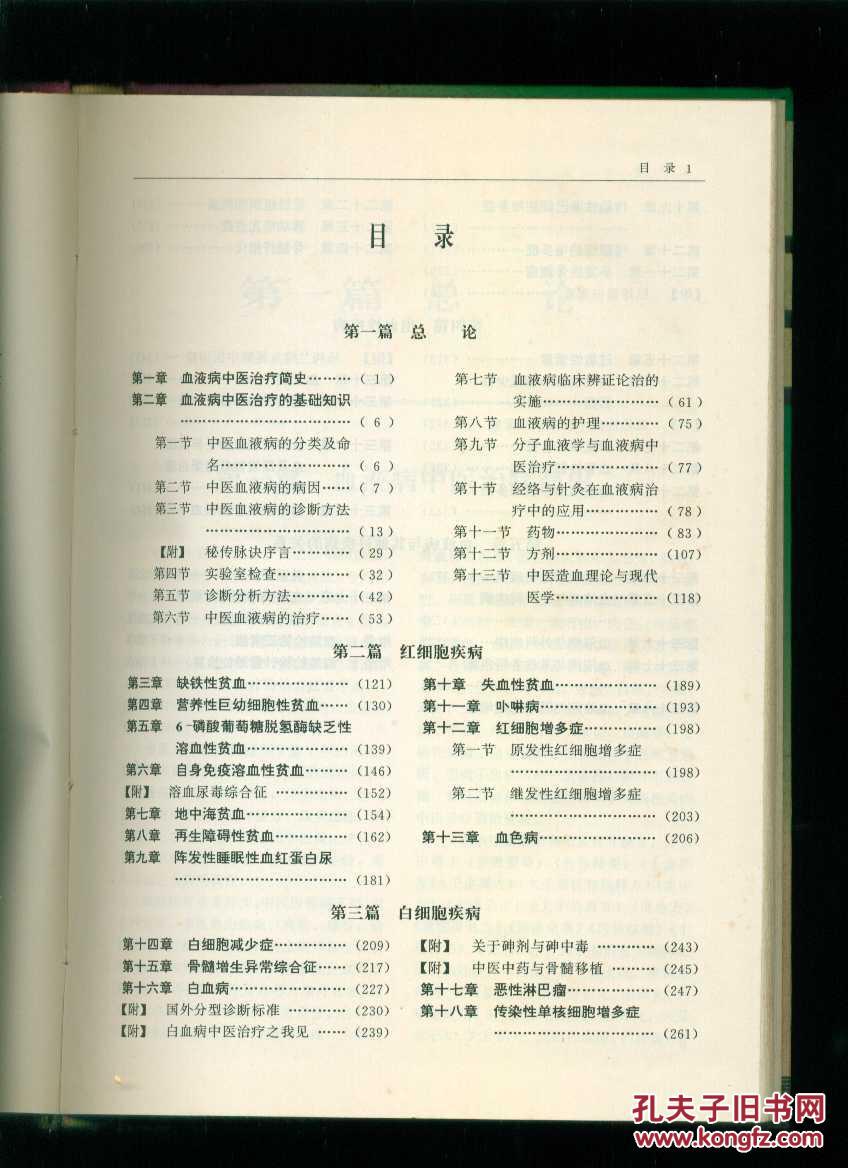 目 录 1
目 录
第一篇 总 论
第一章 血液病中医治疗简史………( 1 )
第二章 血液病中医治疗的基础知识
……………………………( 6 )
第一节 中医血液病的分类及命
名……………………( 6 )
第二节 中医血液病的病因……( 7 )
第三节 中医血液病的诊断方法
……………………………(13)
【附】 秘传脉诀序言…………(29)
第四节 实验室检查……………(32)
第五节 诊断分析方法…………(42)
第六节 中医血液病的治疗……(53)
第七节 血液病临床辨证论治的
实施…………………(61)
第八节 血液病的护理…………(75)
第九节 分子血液学与血液病中
医治疗………………(77)
第十节 经络与针灸在血液病治
疗中的应用…………(78)
第十一节 药物…………………(83)
第十二节 方剂…………………(107)
第十三节 中医造血理论与现代
医学…………………(118)
第二篇 红细胞疾病
第三章 缺铁性贫血………………(121)
第四章 营养性巨幼细胞性贫血……(130)
第五章 6-磷酸葡萄糖脱氢酶缺乏性
溶血性贫血………………(139)
第六章 自身免疫溶血性贫血………(146)
【附】 溶血尿毒综合征…………(152)
第七章 地中海贫血………………(154)
第八章 再生障碍性贫血…………(162)
第九章 阵发性睡眠性血红蛋白尿
……………………………(181)
第十章 失血性贫血………………(189)
第十一章 卟啉病…………………(193)
第十二章 红细胞增多症…………(198)
第一节 原发性红细胞增多症
………………………(198)
第二节 继发性红细胞增多症
………………………(203)
第十三章 血色病…………………(206)
第三篇 白细胞疾病
第十四章 白细胞减少症…………(209)
第十五章 骨髓增生异常综合征……(217)
第十六章 白血病…………………(227)
【附】 国外分型诊断标准…………(230)
【附】 白血病中医治疗之我见……(239)
【附】 关于砷剂与砷中毒…………(243)
【附】 中医中药与骨髓移植………(245)
第十七章 恶性淋巴瘤……………(247)
第十八章 传染性单核细胞增多症
……………………………(261)
孔夫子旧书网
www.kongfz.com